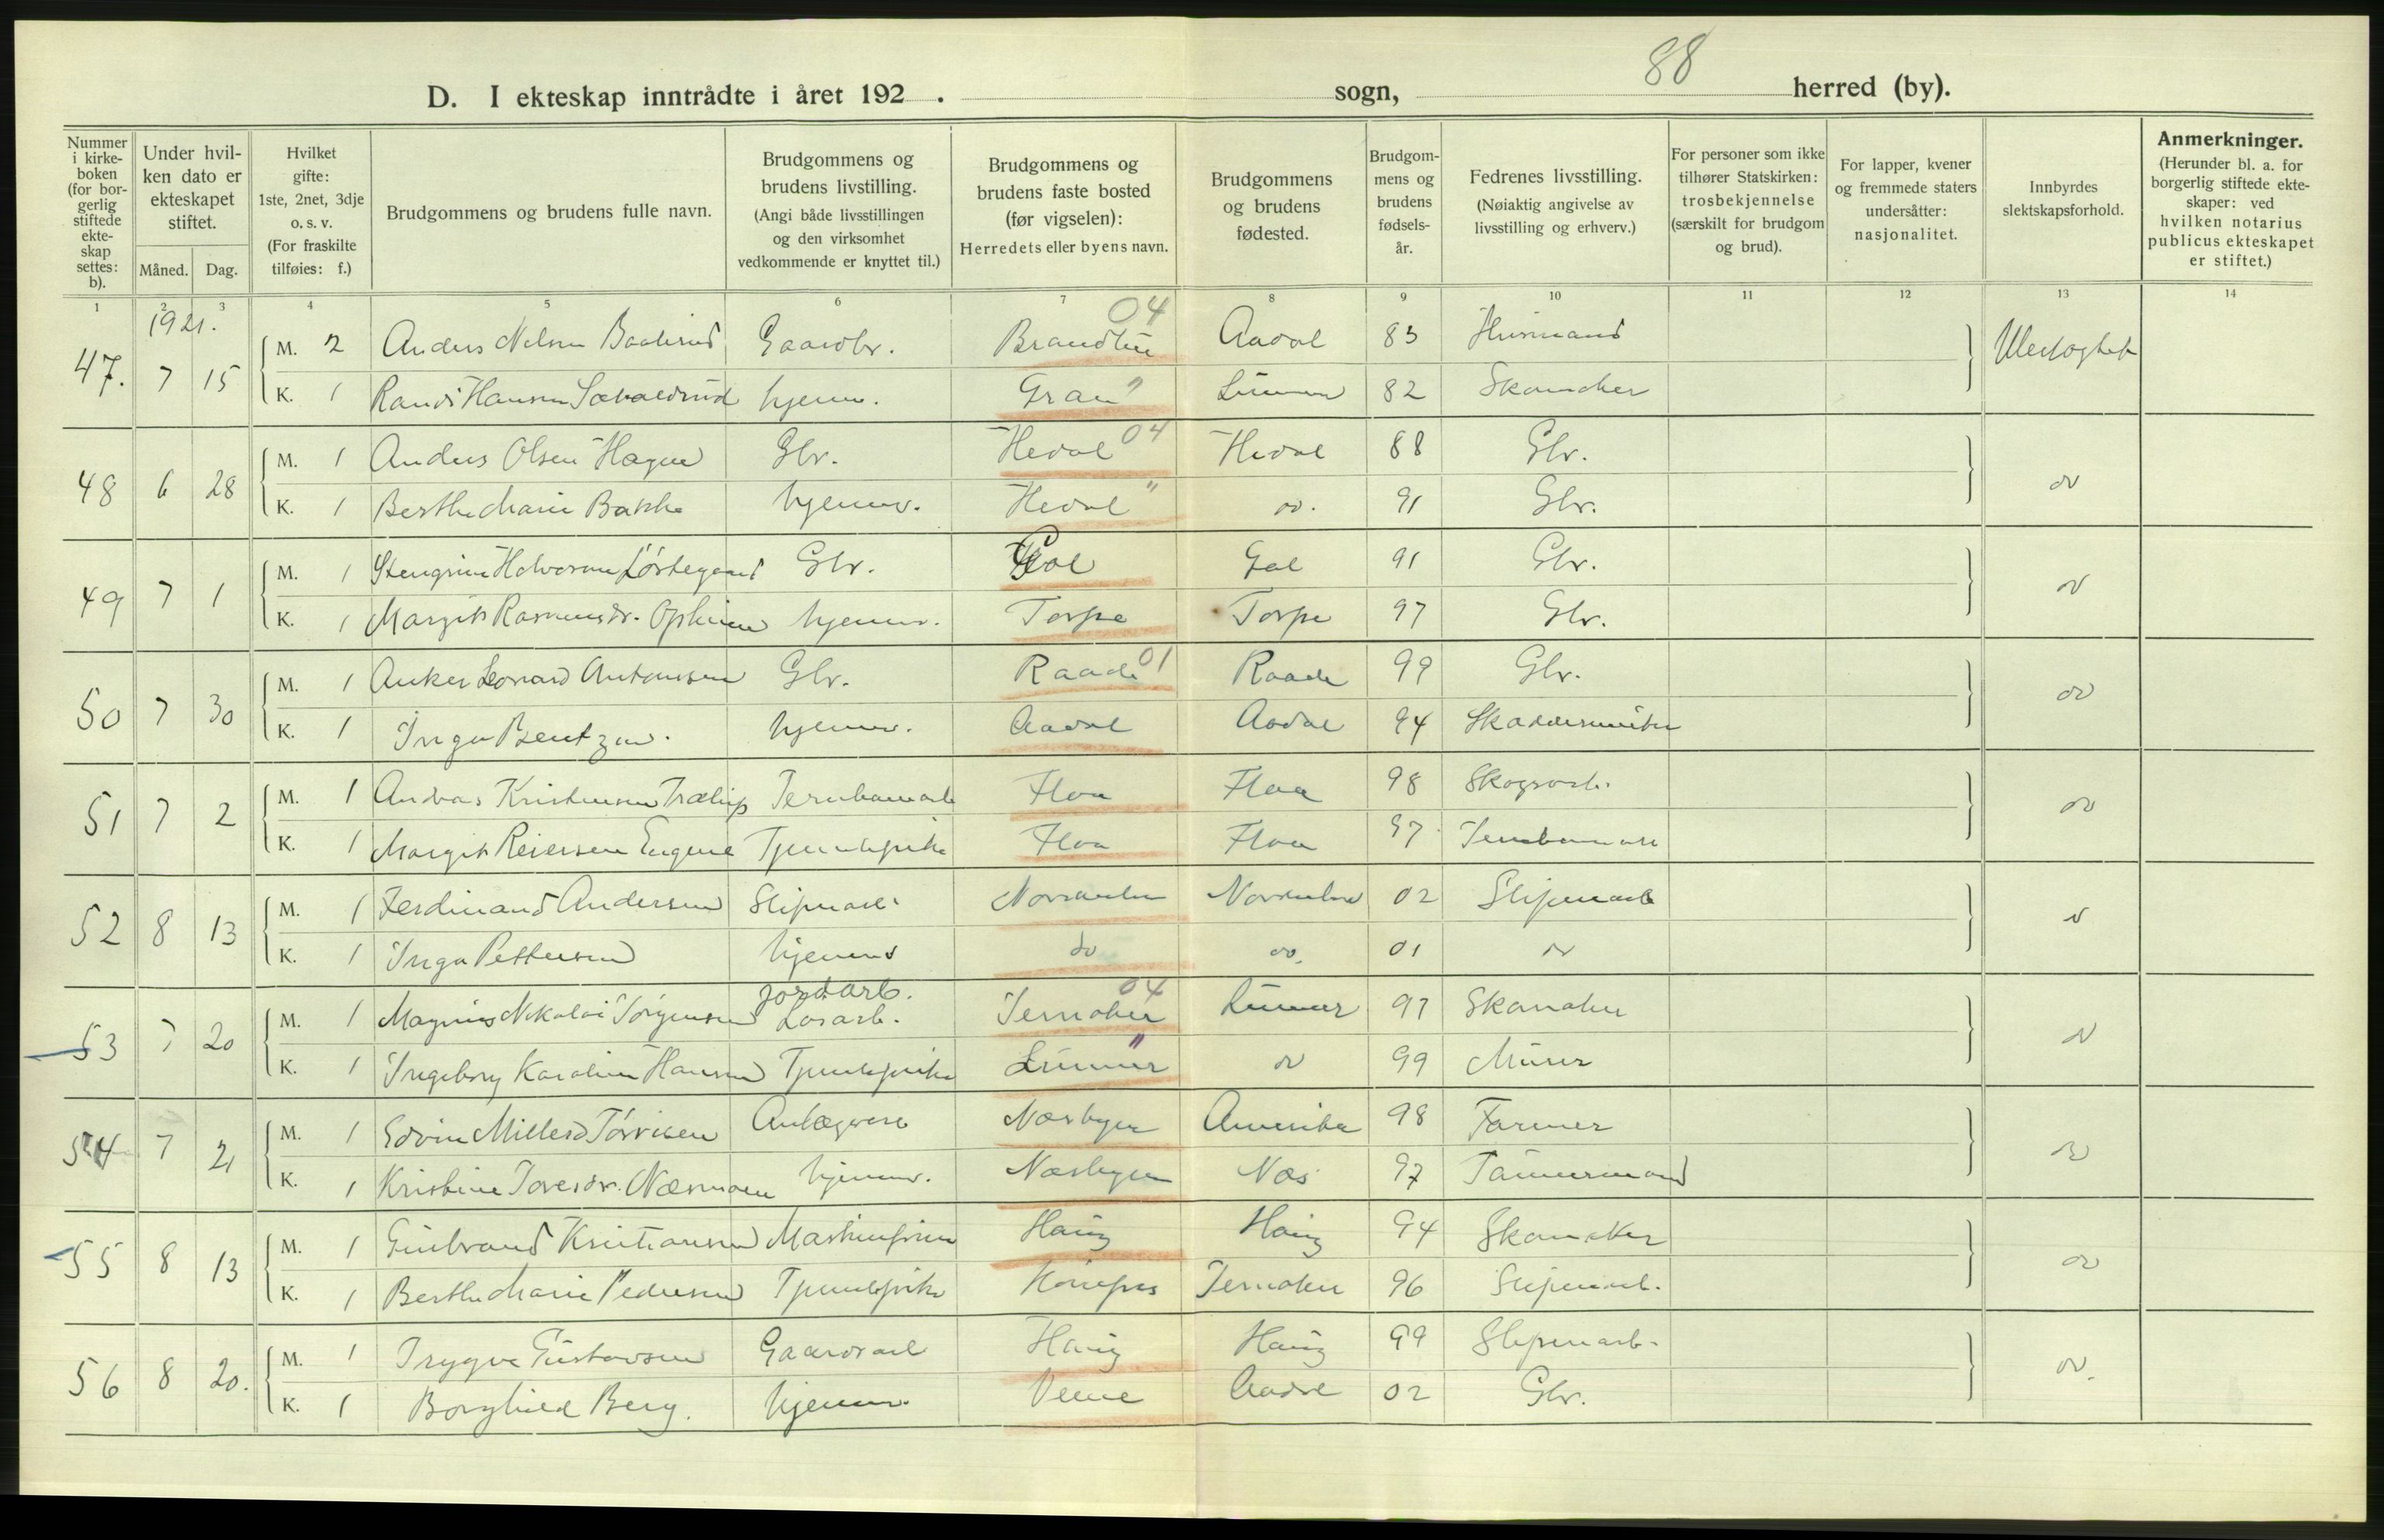 88
D. I ekteskap inntrådte i året 192 . sogn, herred (by).
Nummer i kirke-boken (for bor-gerlig stiftede ekte-skap settes: b).
Under hvil-ken dato er ekteskapet stiftet.
Måned. Dag.
Hvilket gifte: 1ste, 2net, 3dje o. s. v. (For fraskilte tilføies: f.)
Brudgommens og brudens fulle navn.
Brudgommens og brudens livstilling. (Angi både livsstillingen og den virksomhet vedkommende er knyttet til.)
Brudgommens og brudens faste bosted (før vigselen): Herredets eller byens navn.
Brudgommens og brudens fødested.
Brudgom-mens og brudens fødsels-år.
Fedrenes livsstilling. (Nøiaktig angivelse av livsstilling og erhverv.)
For personer som ikke tilhører Statskirken: trosbekjennelse (særskilt for brudgom og brud).
For lapper, kvener og fremmede staters undersåtter: nasjonalitet.
Innbyrdes slektskapsforhold.
Anmerkninger. (Herunder bl. a. for borgerlig stiftede ekte-skaper: ved hvilken notarius publicus ekteskapet er stiftet.)
1 2 3 4 5 6 7 8 9 10 11 12 13 14
1921. 04
47. 7 15 M. 2 Anders Nelsen Gaardbr. Brandbu Aadal 83 Husmand
K. 1 Randi Hansen hjemm. Gran " Lunner 82 Skomaker
48 6 28 M. 1 Anders Olsen Hagen Gbr. Hedal 04 Hedal 88 Gbr. do
K. 1 Berthe Marie Bakke hjemmv. Hedal " do. 91 Gbr.
49 7 1 M. 1 Stengrim Halvorsen Gbr. Gol Gol 91 Gbr. do
K. 1 Margit Rasmusdr. hjemmv. Torpe Torpe 97 Gbr.
50 7 30 M. 1 Anker Leonard Antonsen Gbr. Raade 01 Raade 99 Gbr. do
K. 1 Inga Bentzen. hjemmv. Aadal Aadal 94
51 7 2 M. 1 Andreas Kristensen Jernbanearb Flaa Flaa 98 Skogsarb. do
K. 1 Margit Reiersen Engene Tjenestepike Flaa Flaa 97 Jernbanearb
52 8 13 M. 1 Ferdinand Andersen Sliperarb. Norderhov Norderhov 02 Sliperarb do
K. 1 Inga Pettersen hjemme do do. 01 do
jordarb. 04
53 7 20 M. 1 Magnus Nikolai Jörgensen Løsarb. Jevnaker Lunner 97 Skomaker do
K. 1 Ingeborg Karoline Hansen Tjenestepike Lunner " do 99 Murer
54 7 21 M. 1 Edvin Millerd Anlægsarb Nesbyen Amerika 98 Farmer do
K. 1 Kristine Toresdr. Næsmoen hjemmv. Næsbyen Næs 97 Tømmermand
55 8 13 M. 1 Gulbrand Kristiansen Haug Haug 94 Skomaker do
K. 1 Berthe Marie Pedersen Tjenestepike Hønefos Jevnaker 96 Sliperarb.
56 8 20. M. 1 Trygve Gustavsen Gaardsarb Haug Haug 99 Sliperarb. do.
K. 1 Borghild Berg. hjemmv. Veme Aadal 02 Gbr.